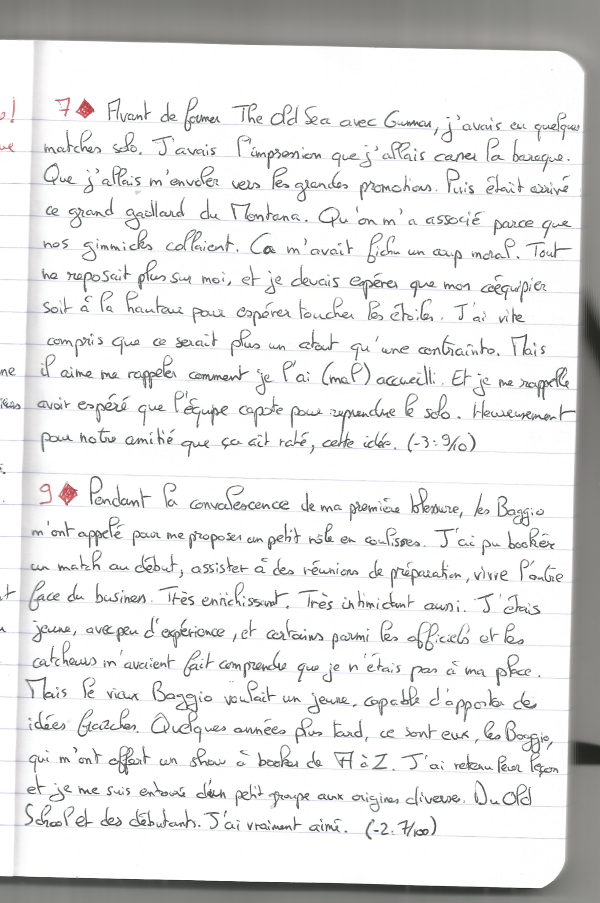 o!
ue
7♦ Avant de former The Old Sea avec Gunnar, j'avais eu quelques
matches solo. J'avais l'impression que j'allais casser la baraque.
Que j'allais m'envoler vers les grandes promotions. Puis était arrivé
ce grand gaillard du Montana. Qu'on m'a associé parce que
nos gimmicks collaient. Ca m'avait fichu un coup moral. Tout
ne reposait plus sur moi, et je devais espérer que mon coéquipier
soit à la hauteur pour espérer toucher les étoiles. J'ai vite
compris que ce serait plus un atout qu'une contrainte. Mais
ne
il aime me rappeler comment je l'ai (mal) accueilli. Et je me rappelle
avoir espéré que l'équipe capote pour reprendre le solo. Heureusement
pour notre amitié que ça ait raté, cette idée. (-3: 9/10)
9♦ Pendant la convalescence de ma première blessure, les Baggio
m'ont appelé pour me proposer un petit rôle en coulisses. J'ai pu booker
un match au début, assister à des réunions de préparation, vivre l'autre
t face du business. Très enrichissant. Très intimidant aussi. J'étais
jeune, avec peu d'expérience, et certains parmi les officiels et les
catcheurs m'avaient fait comprendre que je n'étais pas à ma place.
Mais le vieux Baggio voulait un jeune, capable d'apporter des
idées fraiches. Quelques années plus tard, ce sont eux, les Baggio,
qui m'ont offert un show à booker de A à Z. J'ai retenu leur leçon
et je me suis entouré d'un petit groupe aux origines diverses. Du Old
School et des débutants. J'ai vraiment aimé. (-2: 7/100)